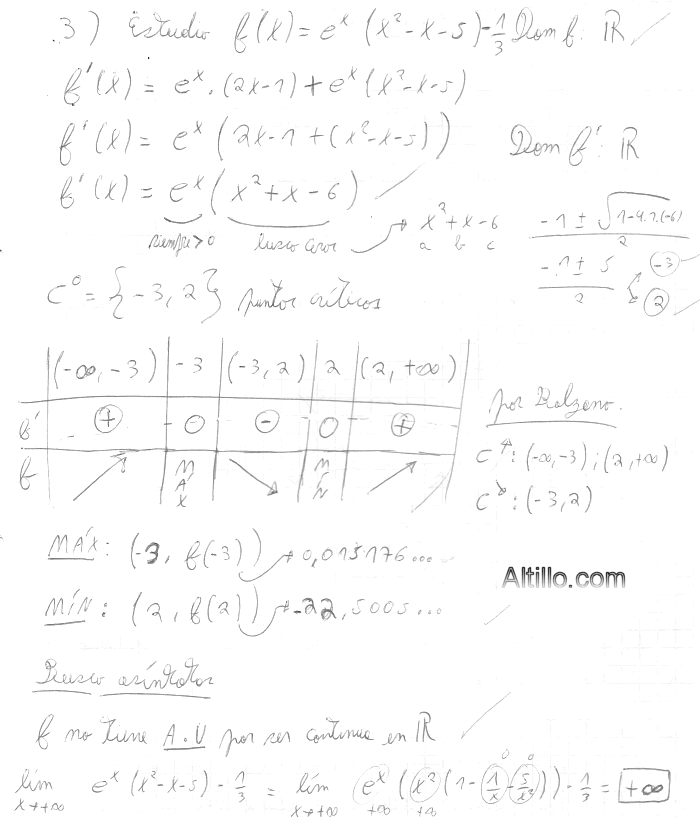 3) Estudio f(x) = e^x (x² - x - 5) - 1/3 Dom f: ℝ
f'(x) = e^x . (2x-1) + e^x (x² - x - 5)
f'(x) = e^x (2x - 1 + (x² - x - 5)) Dom f': ℝ
f'(x) = e^x (x² + x - 6)
siempre > 0 busco ceros → x² + x - 6
a b c
(-1 ± √(1-4.1.(-6)))/2
(-1 ± 5)/2 -3
2
C⁰ = {-3, 2} puntos críticos
(-∞, -3) -3 (-3, 2) 2 (2, +∞)
f' + 0 - 0 +
f ↗ MÁX ↘ MÍN ↗
por Bolzano.
C↑: (-∞, -3); (2, +∞)
C↓: (-3, 2)
MÁX: (-3, f(-3)) → 0,015176...
Altillo.com
MÍN: (2, f(2)) → -22,5005...
Busco asíntotas
f no tiene A.V por ser continua en ℝ
lím x→+∞ e^x (x² - x - 5) - 1/3 = lím x→+∞ e^x (x² (1 - 1/x - 5/x²)) - 1/3 = +∞
+∞ +∞ 0 0